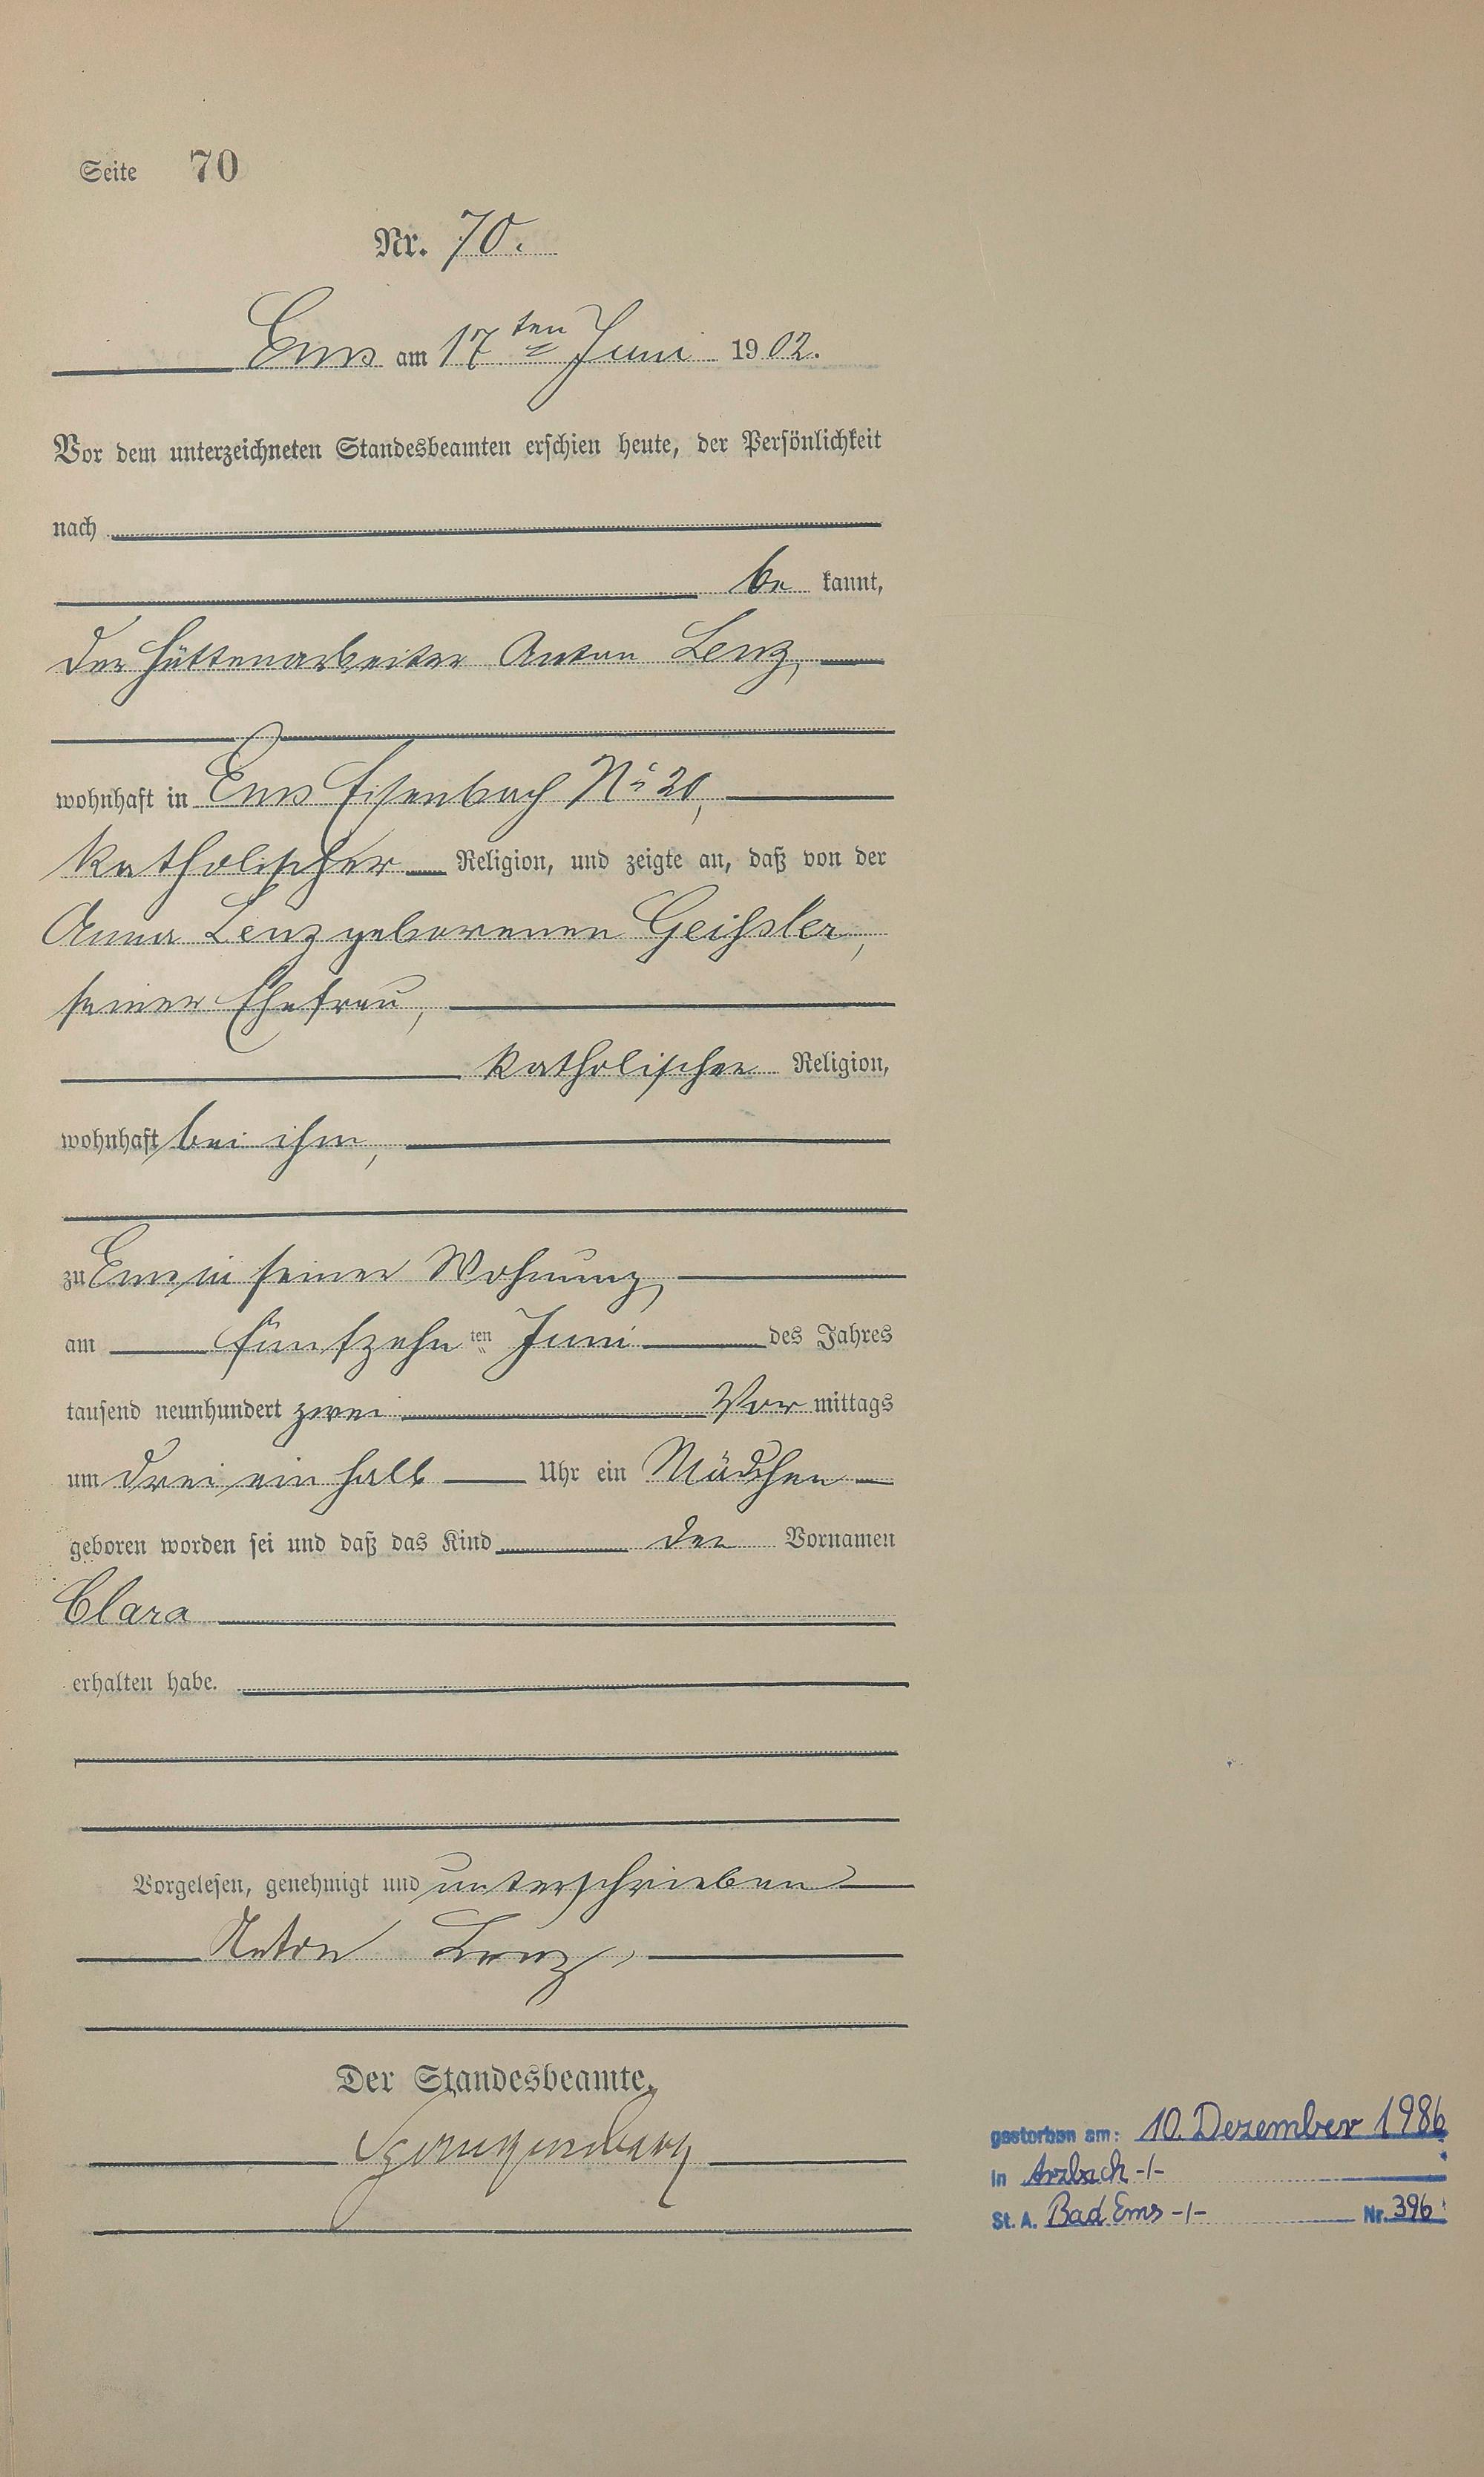 Seite 70
Nr. 70.
Ems am 17ten Juni 1902.
Vor dem unterzeichneten Standesbeamten erschien heute, der Persönlichkeit
nach
be kannt,
der Hüttenarbeiter Anton Lenz,
wohnhaft in Ems Eisenbach No 20,
katholischer Religion, und zeigte an, daß von der
Anna Lenz geborenen Geißsler,
seiner Ehefrau,
katholischer Religion,
wohnhaft bei ihm,
zu Ems in seiner Wohnung,
am fünfzehn ten Juni des Jahres
tausend neunhundert zwei Vor mittags
um drei ein halb Uhr ein Mädchen
geboren worden sei und daß das Kind den Vornamen
Clara
erhalten habe.
Vorgelesen, genehmigt und unterschrieben
Anton Lenz,
Der Standesbeamte.
gestorben am: 10. Dezember 1986
in Arzbach -/-
St. A. Bad Ems -/- Nr. 396